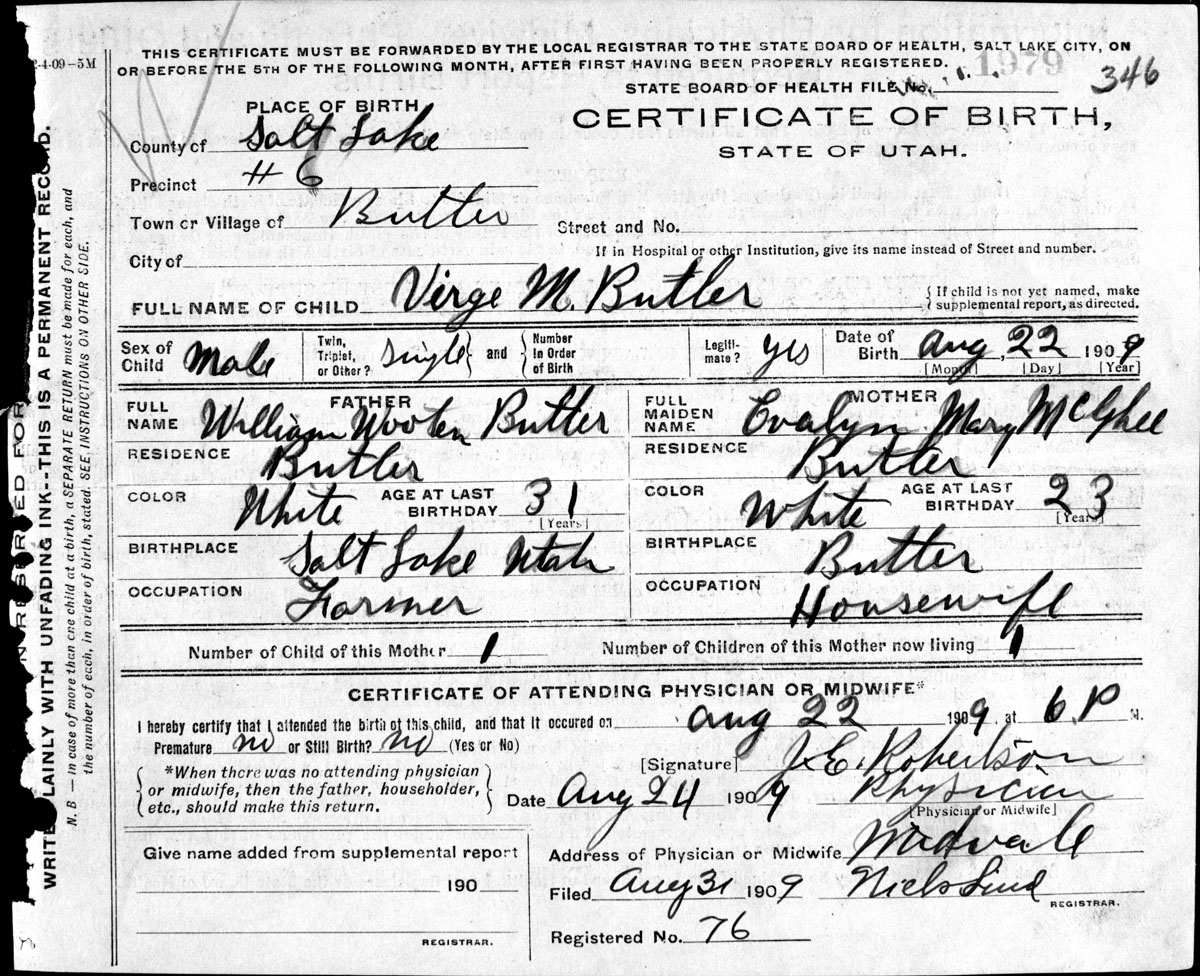 THIS CERTIFICATE MUST BE FORWARDED BY THE LOCAL REGISTRAR TO THE STATE BOARD OF HEALTH, SALT LAKE CITY, ON
2-4-09-5M OR BEFORE THE 5TH OF THE FOLLOWING MONTH, AFTER FIRST HAVING BEEN PROPERLY REGISTERED. 1979
STATE BOARD OF HEALTH FILE No. 346
PLACE OF BIRTH
CERTIFICATE OF BIRTH,
County of Salt Lake
STATE OF UTAH.
Precinct #6
Town or Village of Butler
Street and No.
If in Hospital or other Institution, give its name instead of Street and number.
City of
FULL NAME OF CHILD Virge M. Butler
{If child is not yet named, make
supplemental report, as directed.
Sex of Child Male
Twin, Triplet, or Other? Single } and { Number in Order of Birth
Legiti-mate? yes
Date of Birth Aug, 22 1909
[Month] [Day] [Year]
FATHER
FULL NAME William Wooten Butler
RESIDENCE Butler
COLOR White AGE AT LAST BIRTHDAY 31
[Years]
BIRTHPLACE Salt Lake Utah
OCCUPATION Farmer
MOTHER
FULL MAIDEN NAME Evalyn Mary McGhee
RESIDENCE Butler
COLOR White AGE AT LAST BIRTHDAY 23
[Years]
BIRTHPLACE Butler
OCCUPATION Housewife
Number of Child of this Mother 1 Number of Children of this Mother now living 1
CERTIFICATE OF ATTENDING PHYSICIAN OR MIDWIFE*
I hereby certify that I attended the birth of this child, and that it occured on Aug 22 1909, at 6. P M.
Premature no or Still Birth? no (Yes or No)
[Signature] J. E. Robertson
{*When there was no attending physician
or midwife, then the father, householder,
etc., should make this return.}
Date Aug 24 1909 Physician
[Physician or Midwife]
Give name added from supplemental report
190
REGISTRAR.
Address of Physician or Midwife Midvale
Filed Aug 31 1909 Niels Lind
REGISTRAR.
Registered No. 76
N RESERVED FOR
WRITE PLAINLY WITH UNFADING INK--THIS IS A PERMANENT RECORD.
N. B. — In case of more than one child at a birth, a SEPARATE RETURN must be made for each, and
the number of each, in order of birth, stated. SEE INSTRUCTIONS ON OTHER SIDE.